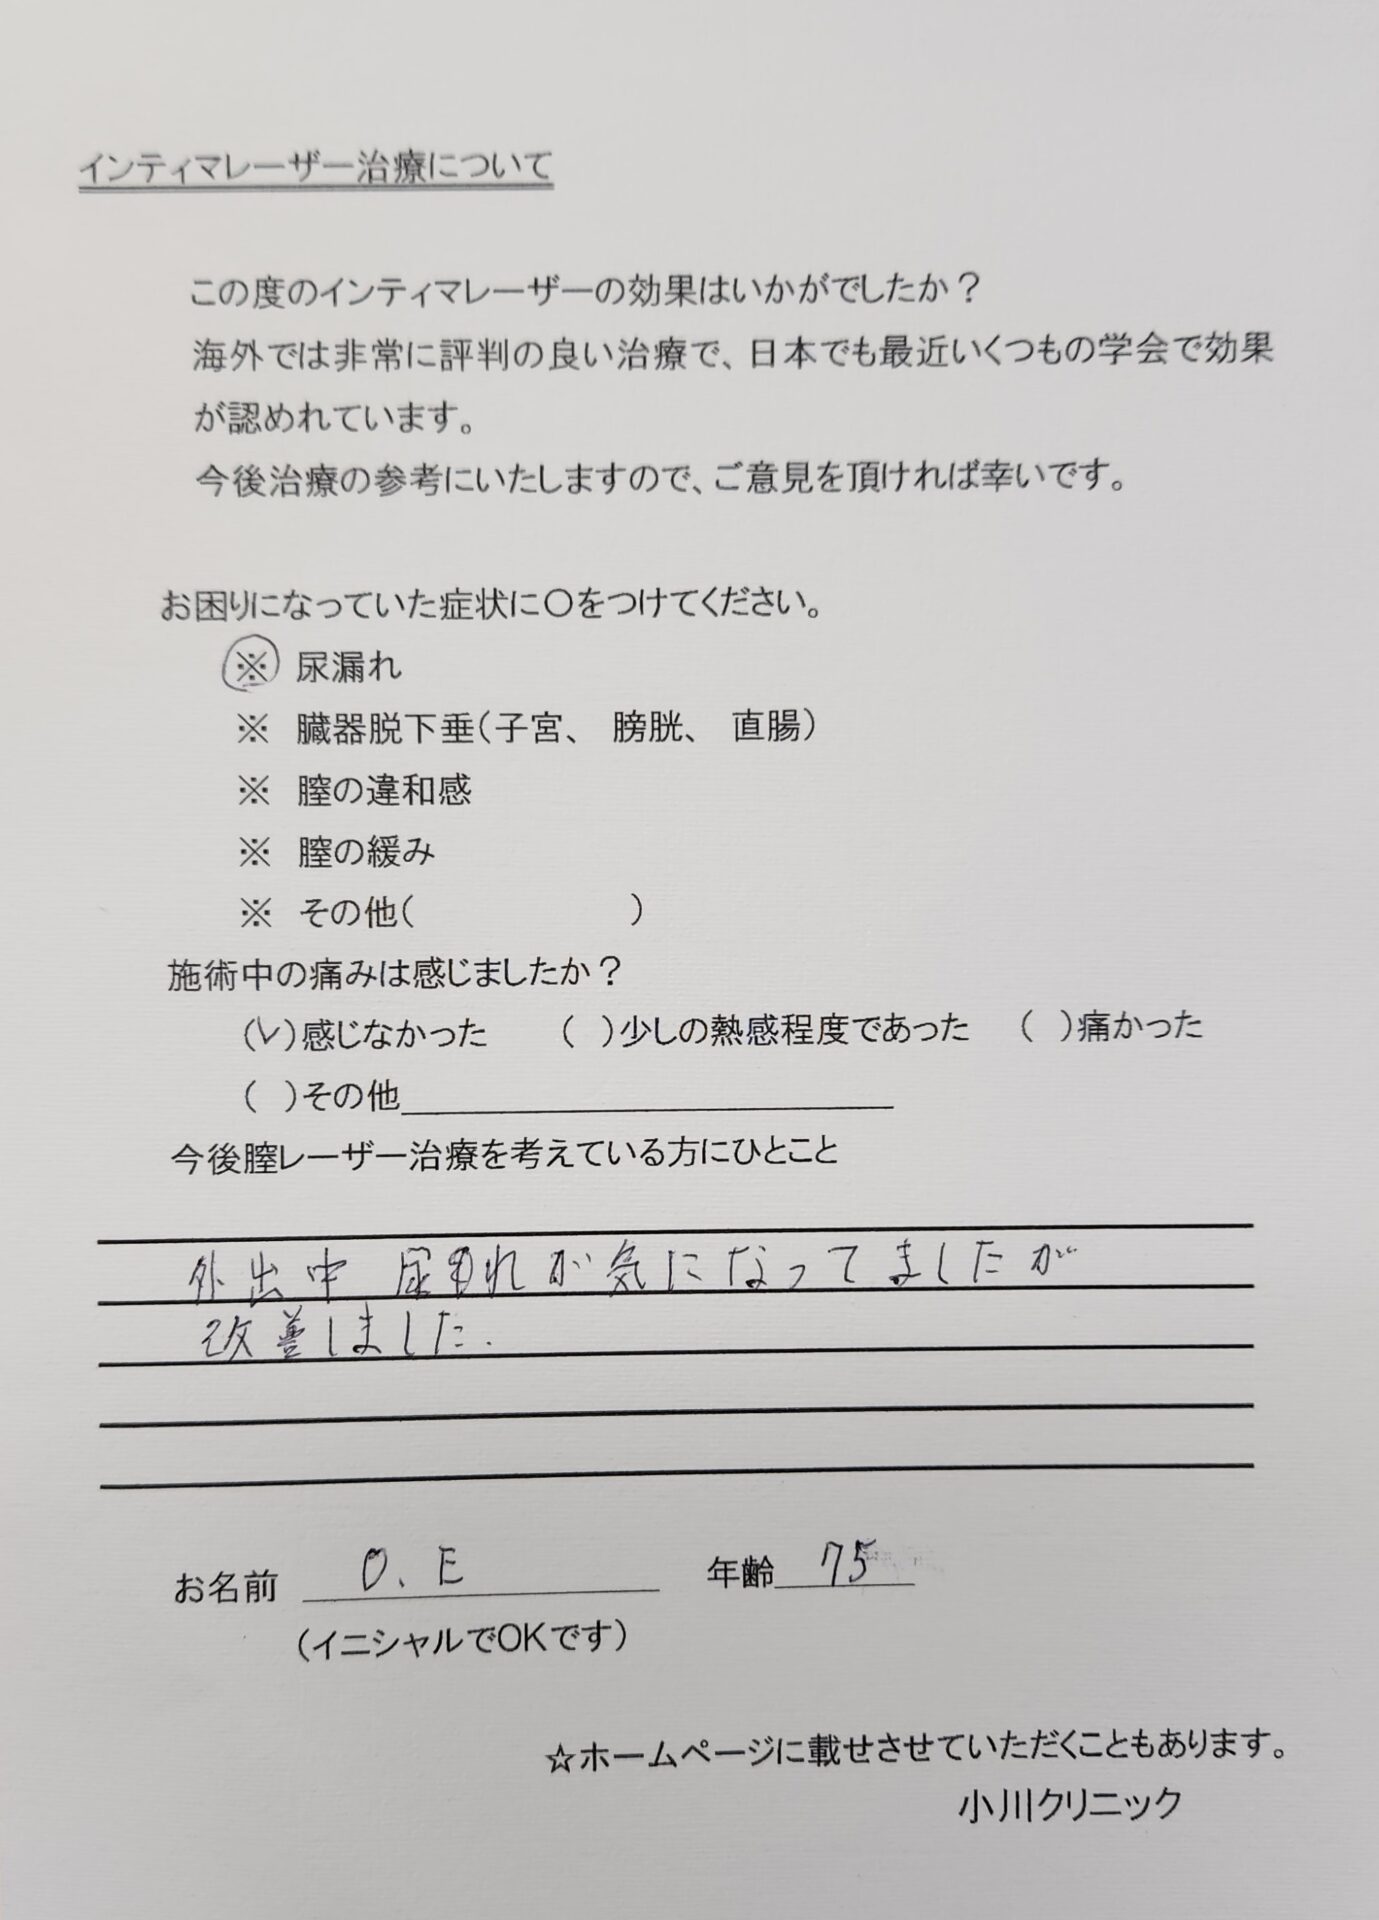 インティマレーザー治療について
この度のインティマレーザーの効果はいかがでしたか？
海外では非常に評判の良い治療で、日本でも最近いくつもの学会で効果
が認めれています。
今後治療の参考にいたしますので、ご意見を頂ければ幸いです。
お困りになっていた症状に〇をつけてください。
※ 尿漏れ
※ 臓器脱下垂（子宮、 膀胱、 直腸）
※ 膣の違和感
※ 膣の緩み
※ その他（ ）
施術中の痛みは感じましたか？
（✓）感じなかった （ ）少しの熱感程度であった （ ）痛かった
（ ）その他
今後膣レーザー治療を考えている方にひとこと
外出中 尿もれが気になってましたが
改善しました.
お名前 O.E 年齢 75
（イニシャルでOKです）
☆ホームページに載せさせていただくこともあります。
小川クリニック